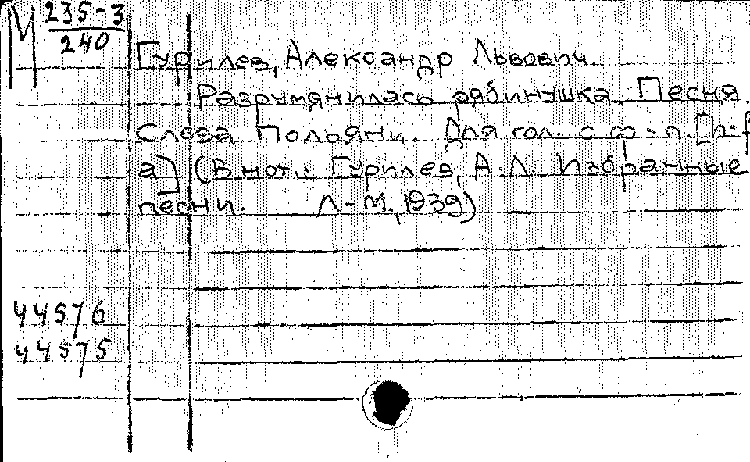 М 235-3
240
Гурилев, Александр Львович.
Разрумянилась рябинушка. Песня.
Слова Полбяни. Для гол. с ф-п. [h-
а] (В нот.: Гурилев, А. Л. Избранные
песни. Л-М, 1939)
44576
44575